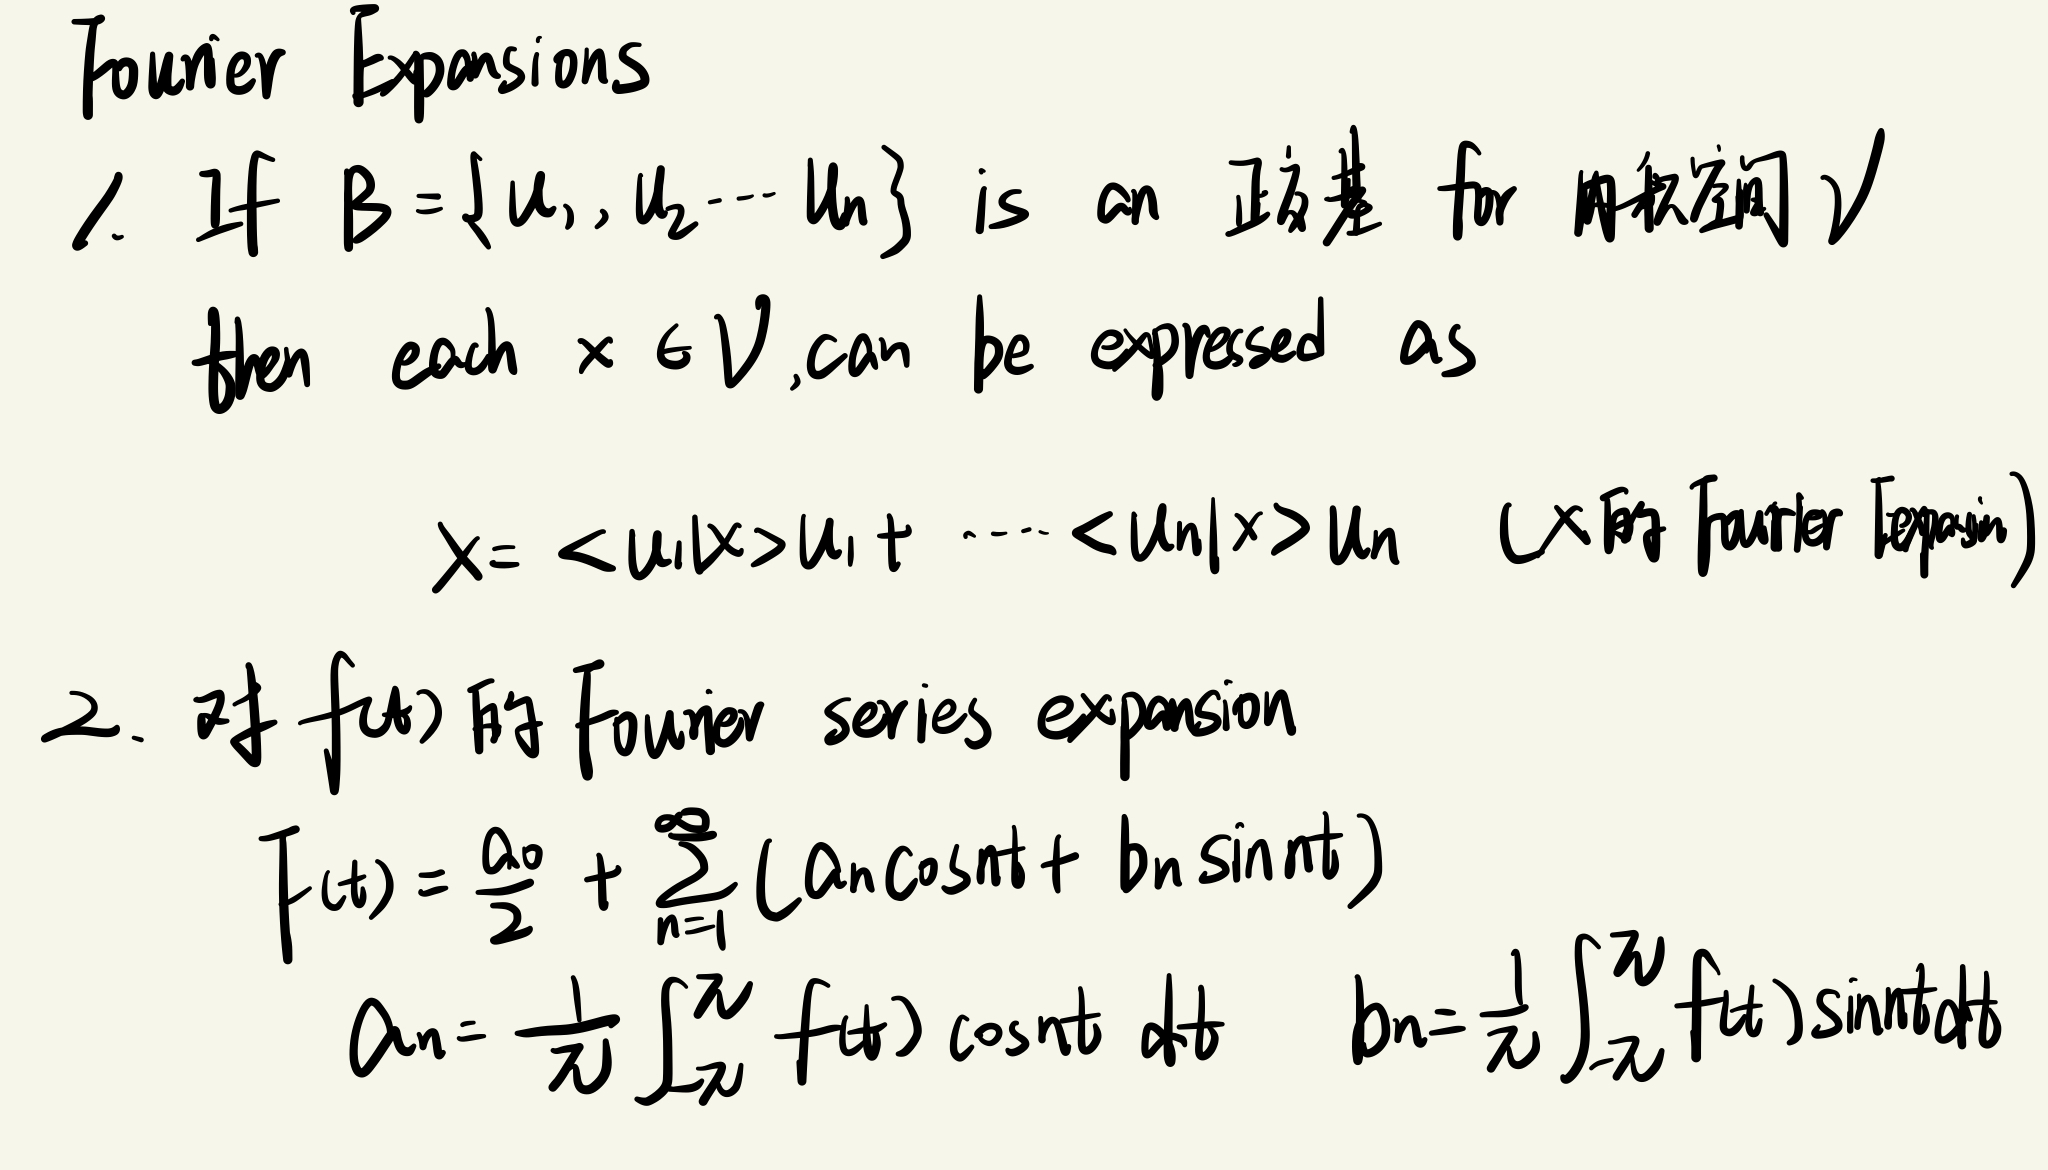 Fourier Expansions
1. If B = {u₁, u₂ ⋯ uₙ} is an 正交基 for 内积空间 V
then each x ∈ V, can be expressed as
x = <u₁|x>u₁ + ⋯ <uₙ|x>uₙ (x的 Fourier Expansion)
2. 对 f(t) 的 Fourier series expansion
F(t) = a₀/2 + ∑_{n=1}^{∞} (aₙ cos nt + bₙ sin nt)
aₙ = 1/π ∫_{-π}^{π} f(t) cos nt dt bₙ = 1/π ∫_{-π}^{π} f(t) sin nt dt